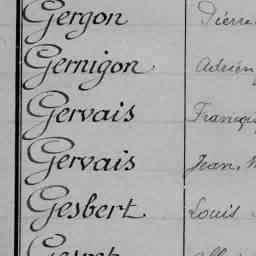 Gergon Pierre
Gernigon Adrien
Gervais
Gervais Jean
Gesbert Louis